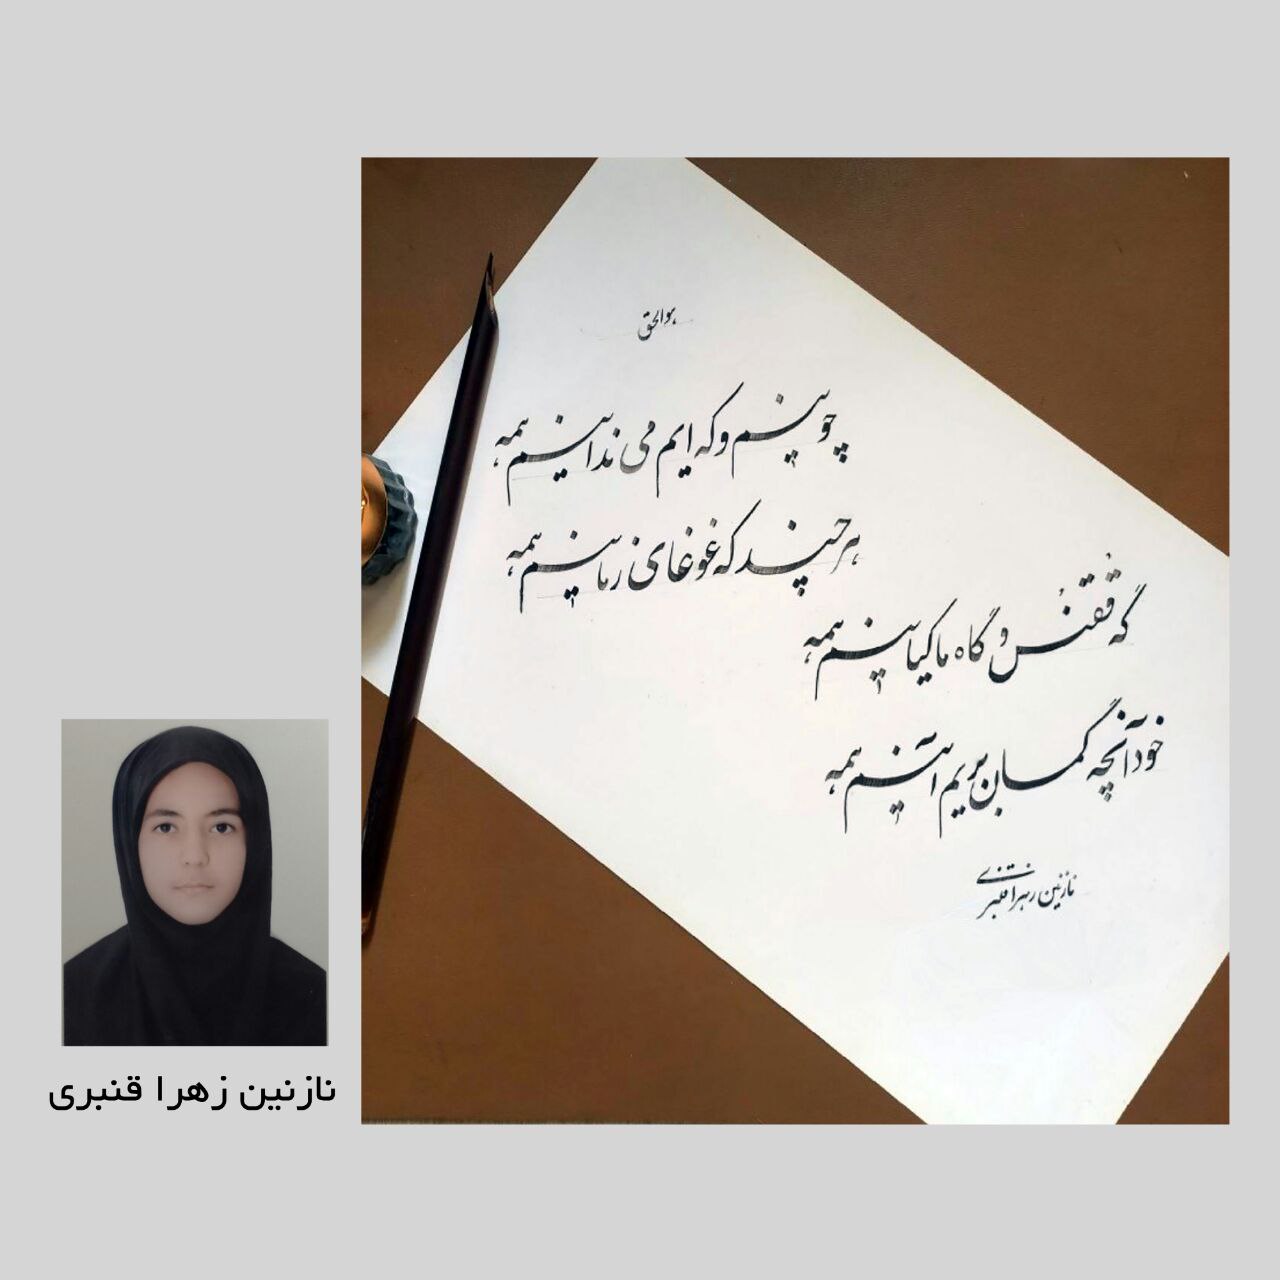 هوالحق
چونیم و که ایم می ندانیم همه
هرچند که غوغای زمانیم همه
گه ققنس و گاه ماکیانیم همه
خود آنچه گمان بریم آنیم همه
نازنین زهرا قنبری
نازنین زهرا قنبری